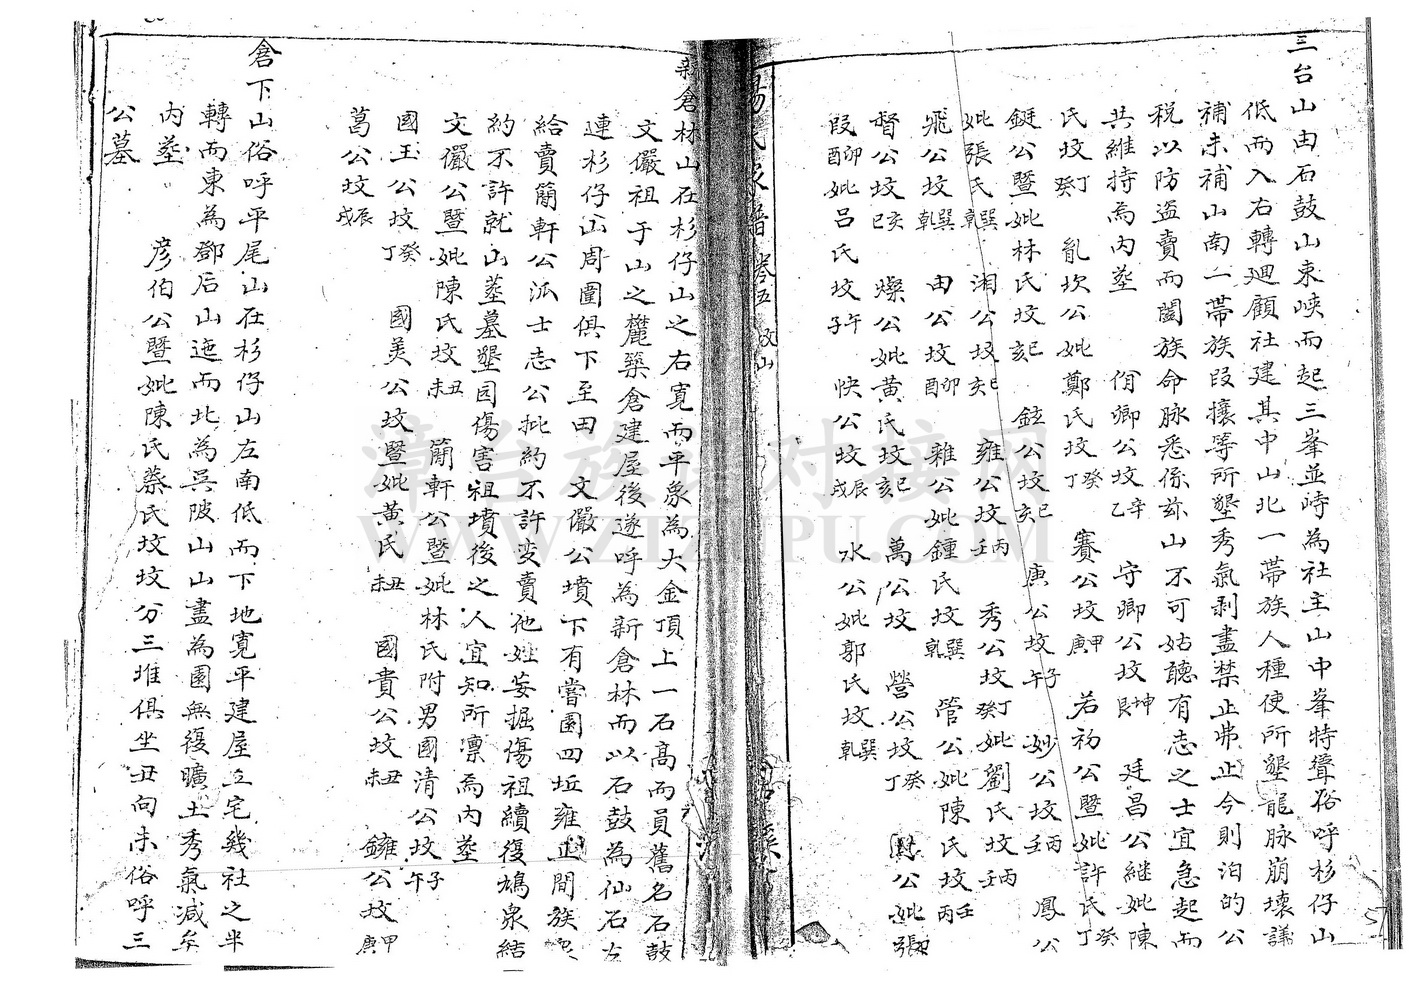 三台山由石鼓山東峽而起三峯並峙為社主山中峯特聳俗呼杉仔山
低而入右轉廻顧社建其中山北一帯族人種使所墾龍脉崩壞議
補未補山南一帯族段攘等所墾秀氣剥盡禁止弗止今則泊的公
税以防盗賣而闔族命脉悉係茲山不可姑聽有志之士宜急起而
共維持為內塋 佾卿公坟辛乙 守卿公坟坤 廷昌公継妣陳
氏坟丁癸 亂坎公妣鄭氏坟癸丁 賽公坟甲庚 若初公暨妣許氏癸丁
鋌公暨妣林氏坟巳亥 鉉公坟巳亥 庚公坟子午 妙公坟丙壬 鳳公
妣張氏巽乾 湘公坟巳亥 雍公坟丙壬 秀公坟丁癸妣劉氏坟丙壬
飛公坟巽乾 由公坟卯酉 雜公妣鍾氏坟巽乾 管公妣陳氏坟壬丙
督公坟亥巳 燦公妣黄氏坟巳亥 萬公坟 營公坟癸丁 公妣張
段卯酉妣吕氏坟午子 快公坟辰戌 水公妣郭氏坟巽乾
楊氏家譜 卷五 坟山
新倉林山在杉仔山之右寬而平象為大金頂上一石高而員舊名石鼓
文儼祖于山之麓築倉建屋後遂呼為新倉林而以石鼓為仙石左
連杉仔山周圍俱下至田 文儼公墳下有嘗園四坵雍正間族眾
給賣簡軒公派士志公批約不許变賣他姓妄掘傷祖續復鳩泉結
約不許就山塋墓墾园傷害祖墳後之人宜知所凛為內塋
文儼公暨妣陳氏坟丑未 簡軒公暨妣林氏附男國清公坟子午
國玉公坟癸丁 國美公坟暨妣黄氏丑未 國貴公坟丑未 鏞公坟甲庚
葛公坟辰戌
倉下山俗呼平尾山在杉仔山左南低而下地寬平建屋立宅幾社之半
轉而東為鄧后山迤而北為吳陂山山盡為園無復曠土秀氣减矣
內塋 彦伯公暨妣陳氏蔡氏坟坟分三堆俱坐丑向未俗呼三
公墓
漳台族谱对接网
WWW.ZTZUPU.COM
57